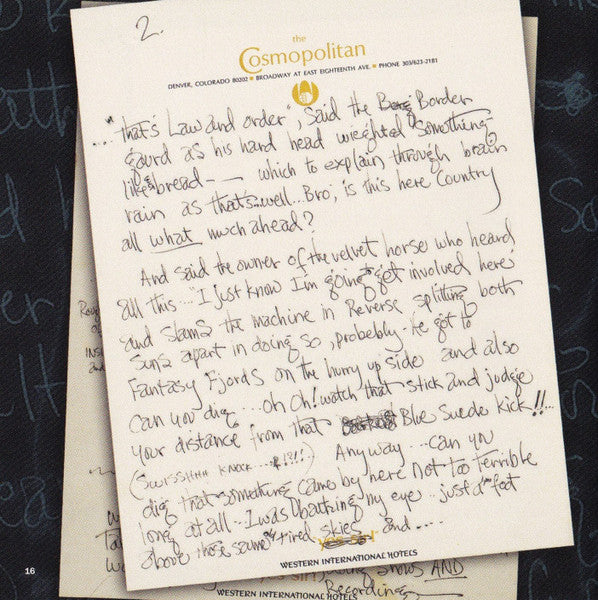 2.
the
Cosmopolitan
DENVER, COLORADO 80202 • BROADWAY AT EAST EIGHTEENTH AVE. • PHONE 303/623-2181
..."that's Law and order", said the Border
gaurd as his hard head wieghted something
like bread -- which to explain through brain
rain as that's..well... Bro; is this here Country
all what much ahead?
And said the owner of the velvet horse who heard
all this..."I just know I'm going get involved here"
and slams the machine in Reverse splitting both
suns apart in doing so, probebly - he got to
Fantasy Fjords on the hurry up side and also
Can you dig... oh oh! watch that stick and judge
your distance from that Blue Suede kick!!...
(SWISSHHH KNOCK....!?!) Anyway...can you
dig that something came by here not too terrible
long at all... I was bathing my eye.. just a foot
above those same tired skies and....
WESTERN INTERNATIONAL HOTELS
16
shows AND
Recordings
WESTERN INTERNATIONAL HOTELS